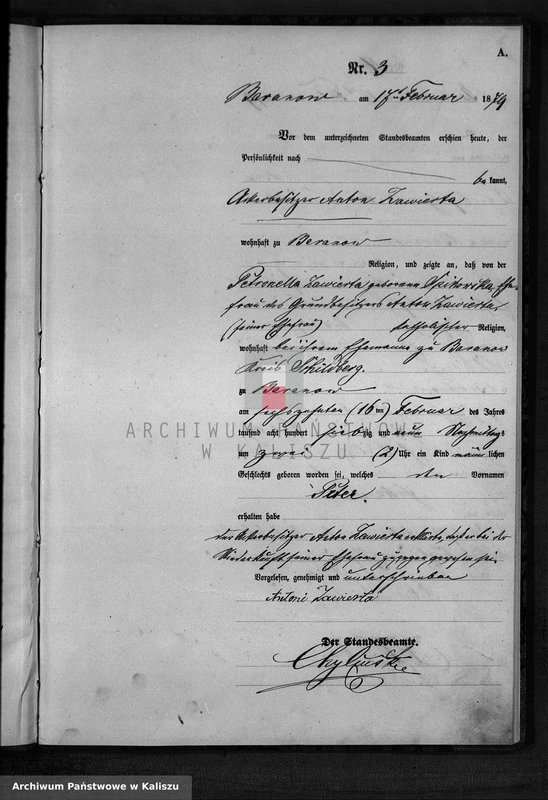 A.
Nr. 3
Baranow am 17ten Februar 1879
Vor dem unterzeichneten Standesbeamten erschien heute, der
Persönlichkeit nach
bekannt,
Ackerbesitzer Anton Zawierta
wohnhaft zu Baranow
Religion, und zeigte an, daß von der
Petronella Zawierta geborenen Ehe-
frau des Grundbesitzers Anton Zawierta
(seiner Ehefrau) katholischer Religion,
wohnhaft bei ihrem Ehemanne zu Baranow
Kreis Schildberg.
zu Baranow
am sechszehnten (16ten) Februar des Jahres
tausend acht hundert siebzig und neun Nachmittags
um zwei (2) Uhr ein Kind männlichen
Geschlechts geboren worden sei, welches den Vornamen
Peter.
erhalten habe
der Ackerbesitzer Anton Zawierta erklärte, daß er bei der
Niederkunft seiner Ehefrau zugegen gewesen sei.
Vorgelesen, genehmigt und unterschrieben
Antoni Zawierta
Der Standesbeamte.
ARCHIWUM PAŃSTWOWE
W KALISZU
Archiwum Państwowe w Kaliszu